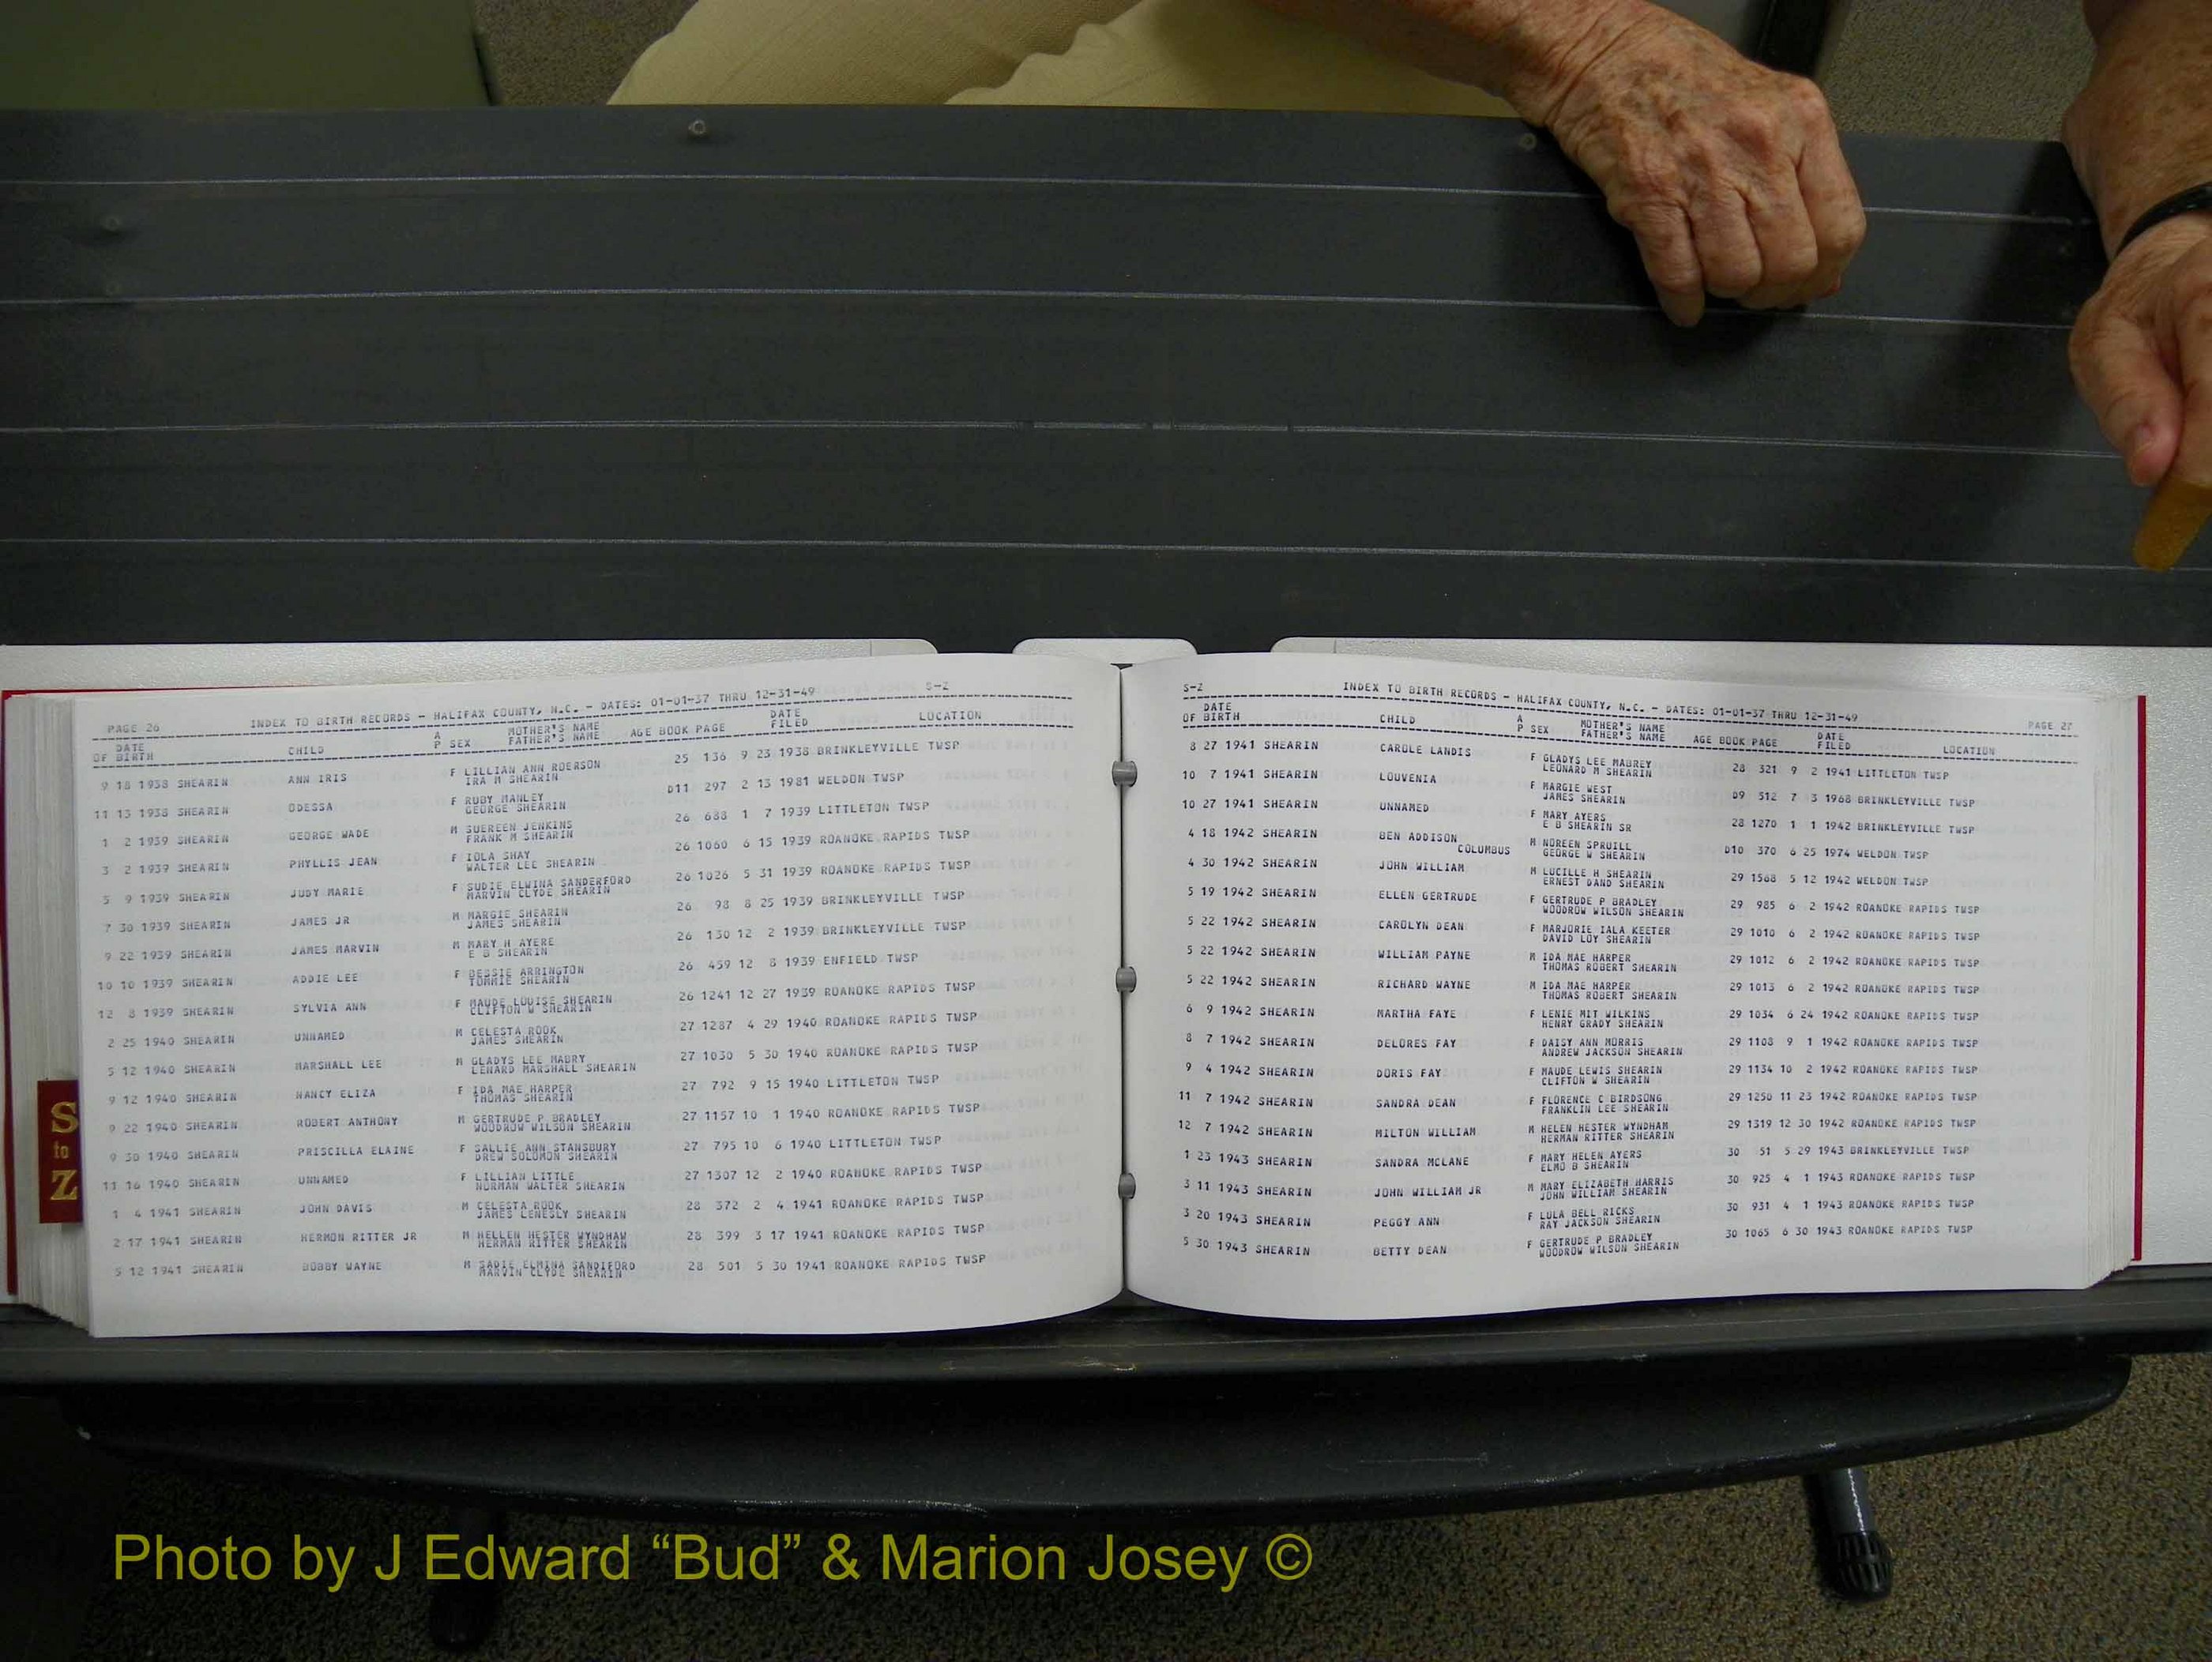 PAGE 26 INDEX TO BIRTH RECORDS - HALIFAX COUNTY, N.C. - DATES: 01-01-37 THRU 12-31-49 S-Z
DATE OF BIRTH CHILD A P SEX MOTHER'S NAME FATHER'S NAME AGE BOOK PAGE DATE FILED LOCATION
9 18 1938 SHEARIN ANN IRIS F LILLIAN ANN ROERSON 25 136 9 23 1938 BRINKLEYVILLE TWSP
IRA M SHEARIN
11 13 1938 SHEARIN ODESSA F RUBY MANLEY D11 297 2 13 1981 WELDON TWSP
GEORGE SHEARIN
1 2 1939 SHEARIN GEORGE WADE M SUEREEN JENKINS 26 688 1 7 1939 LITTLETON TWSP
FRANK M SHEARIN
3 2 1939 SHEARIN PHYLLIS JEAN F IOLA SHAY 26 1060 6 15 1939 ROANOKE RAPIDS TWSP
WALTER LEE SHEARIN
5 9 1939 SHEARIN JUDY MARIE F SUDIE ELWINA SANDERFORD 26 1026 5 31 1939 ROANOKE RAPIDS TWSP
MARVIN CLYDE SHEARIN
7 30 1939 SHEARIN JAMES JR M MARGIE SHEARIN 26 98 8 25 1939 BRINKLEYVILLE TWSP
JAMES SHEARIN
9 22 1939 SHEARIN JAMES MARVIN M MARY H AYERE 26 130 12 2 1939 BRINKLEYVILLE TWSP
E B SHEARIN
10 10 1939 SHEARIN ADDIE LEE F BESSIE ARRINGTON 26 459 12 8 1939 ENFIELD TWSP
TOMMIE SHEARIN
12 8 1939 SHEARIN SYLVIA ANN F MAUDE LOUISE SHEARIN 26 1241 12 27 1939 ROANOKE RAPIDS TWSP
CLIFTON W SHEARIN
2 25 1940 SHEARIN UNNAMED M CELESTA ROOK 27 1287 4 29 1940 ROANOKE RAPIDS TWSP
JAMES SHEARIN
5 12 1940 SHEARIN MARSHALL LEE M GLADYS LEE MABRY 27 1030 5 30 1940 ROANOKE RAPIDS TWSP
LENARD MARSHALL SHEARIN
9 12 1940 SHEARIN NANCY ELIZA F IDA MAE HARPER 27 792 9 15 1940 LITTLETON TWSP
THOMAS SHEARIN
9 22 1940 SHEARIN ROBERT ANTHONY M GERTRUDE P BRADLEY 27 1157 10 1 1940 ROANOKE RAPIDS TWSP
WOODROW WILSON SHEARIN
9 30 1940 SHEARIN PRISCILLA ELAINE F SALLIE ANN STANSBURY 27 795 10 6 1940 LITTLETON TWSP
DREW SOLOMON SHEARIN
11 16 1940 SHEARIN UNNAMED F LILLIAN LITTLE 27 1307 12 2 1940 ROANOKE RAPIDS TWSP
NORMAN WALTER SHEARIN
1 4 1941 SHEARIN JOHN DAVIS M CELESTA ROOK 28 372 2 4 1941 ROANOKE RAPIDS TWSP
JAMES LENESLY SHEARIN
2 17 1941 SHEARIN HERMON RITTER JR M HELLEN HESTER WYNDHAM 28 399 3 17 1941 ROANOKE RAPIDS TWSP
HERMAN RITTER SHEARIN
5 12 1941 SHEARIN BOBBY WAYNE M SADIE ELMINA SANDIFORD 28 501 5 30 1941 ROANOKE RAPIDS TWSP
MARVIN CLYDE SHEARIN
S
to
Z
S-Z INDEX TO BIRTH RECORDS - HALIFAX COUNTY, N.C. - DATES: 01-01-37 THRU 12-31-49 PAGE
DATE OF BIRTH CHILD A P SEX MOTHER'S NAME FATHER'S NAME AGE BOOK PAGE DATE FILED LOCATION
8 27 1941 SHEARIN CAROLE LANDIS F GLADYS LEE MABREY 28 321 9 2 1941 LITTLETON TWSP
LEONARD M SHEARIN
10 7 1941 SHEARIN LOUVENIA F MARGIE WEST D9 512 7 3 1968 BRINKLEYVILLE TWSP
JAMES SHEARIN
10 27 1941 SHEARIN UNNAMED F MARY AYERS 28 1270 1 1 1942 BRINKLEYVILLE TWSP
E B SHEARIN SR
4 18 1942 SHEARIN BEN ADDISON COLUMBUS M NOREEN SPRUILL D10 370 6 25 1974 WELDON TWSP
GEORGE W SHEARIN
4 30 1942 SHEARIN JOHN WILLIAM M LUCILLE H SHEARIN 29 1568 5 12 1942 WELDON TWSP
ERNEST DAND SHEARIN
5 19 1942 SHEARIN ELLEN GERTRUDE F GERTRUDE P BRADLEY 29 985 6 2 1942 ROANOKE RAPIDS TWSP
WOODROW WILSON SHEARIN
5 22 1942 SHEARIN CAROLYN DEAN F MARJORIE IALA KEETER 29 1010 6 2 1942 ROANOKE RAPIDS TWSP
DAVID LOY SHEARIN
5 22 1942 SHEARIN WILLIAM PAYNE M IDA MAE HARPER 29 1012 6 2 1942 ROANOKE RAPIDS TWSP
THOMAS ROBERT SHEARIN
5 22 1942 SHEARIN RICHARD WAYNE M IDA MAE HARPER 29 1013 6 2 1942 ROANOKE RAPIDS TWSP
THOMAS ROBERT SHEARIN
6 9 1942 SHEARIN MARTHA FAYE F LENIE MIT WILKINS 29 1034 6 24 1942 ROANOKE RAPIDS TWSP
HENRY GRADY SHEARIN
8 7 1942 SHEARIN DELORES FAY F DAISY ANN MORRIS 29 1108 9 1 1942 ROANOKE RAPIDS TWSP
ANDREW JACKSON SHEARIN
9 4 1942 SHEARIN DORIS FAY F MAUDE LEWIS SHEARIN 29 1134 10 2 1942 ROANOKE RAPIDS TWSP
CLIFTON W SHEARIN
11 7 1942 SHEARIN SANDRA DEAN F FLORENCE C BIRDSONG 29 1250 11 23 1942 ROANOKE RAPIDS TWSP
FRANKLIN LEE SHEARIN
12 7 1942 SHEARIN MILTON WILLIAM M HELEN HESTER WYNDHAM 29 1319 12 30 1942 ROANOKE RAPIDS TWSP
HERMAN RITTER SHEARIN
1 23 1943 SHEARIN SANDRA MCLANE F MARY HELEN AYERS 30 51 5 29 1943 BRINKLEYVILLE TWSP
ELMO B SHEARIN
3 11 1943 SHEARIN JOHN WILLIAM JR M MARY ELIZABETH HARRIS 30 925 4 1 1943 ROANOKE RAPIDS TWSP
JOHN WILLIAM SHEARIN
3 20 1943 SHEARIN PEGGY ANN F LULA BELL RICKS 30 931 4 1 1943 ROANOKE RAPIDS TWSP
RAY JACKSON SHEARIN
5 30 1943 SHEARIN BETTY DEAN F GERTRUDE P BRADLEY 30 1065 6 30 1943 ROANOKE RAPIDS TWSP
WOODROW WILSON SHEARIN
Photo by J Edward “Bud” & Marion Josey ©